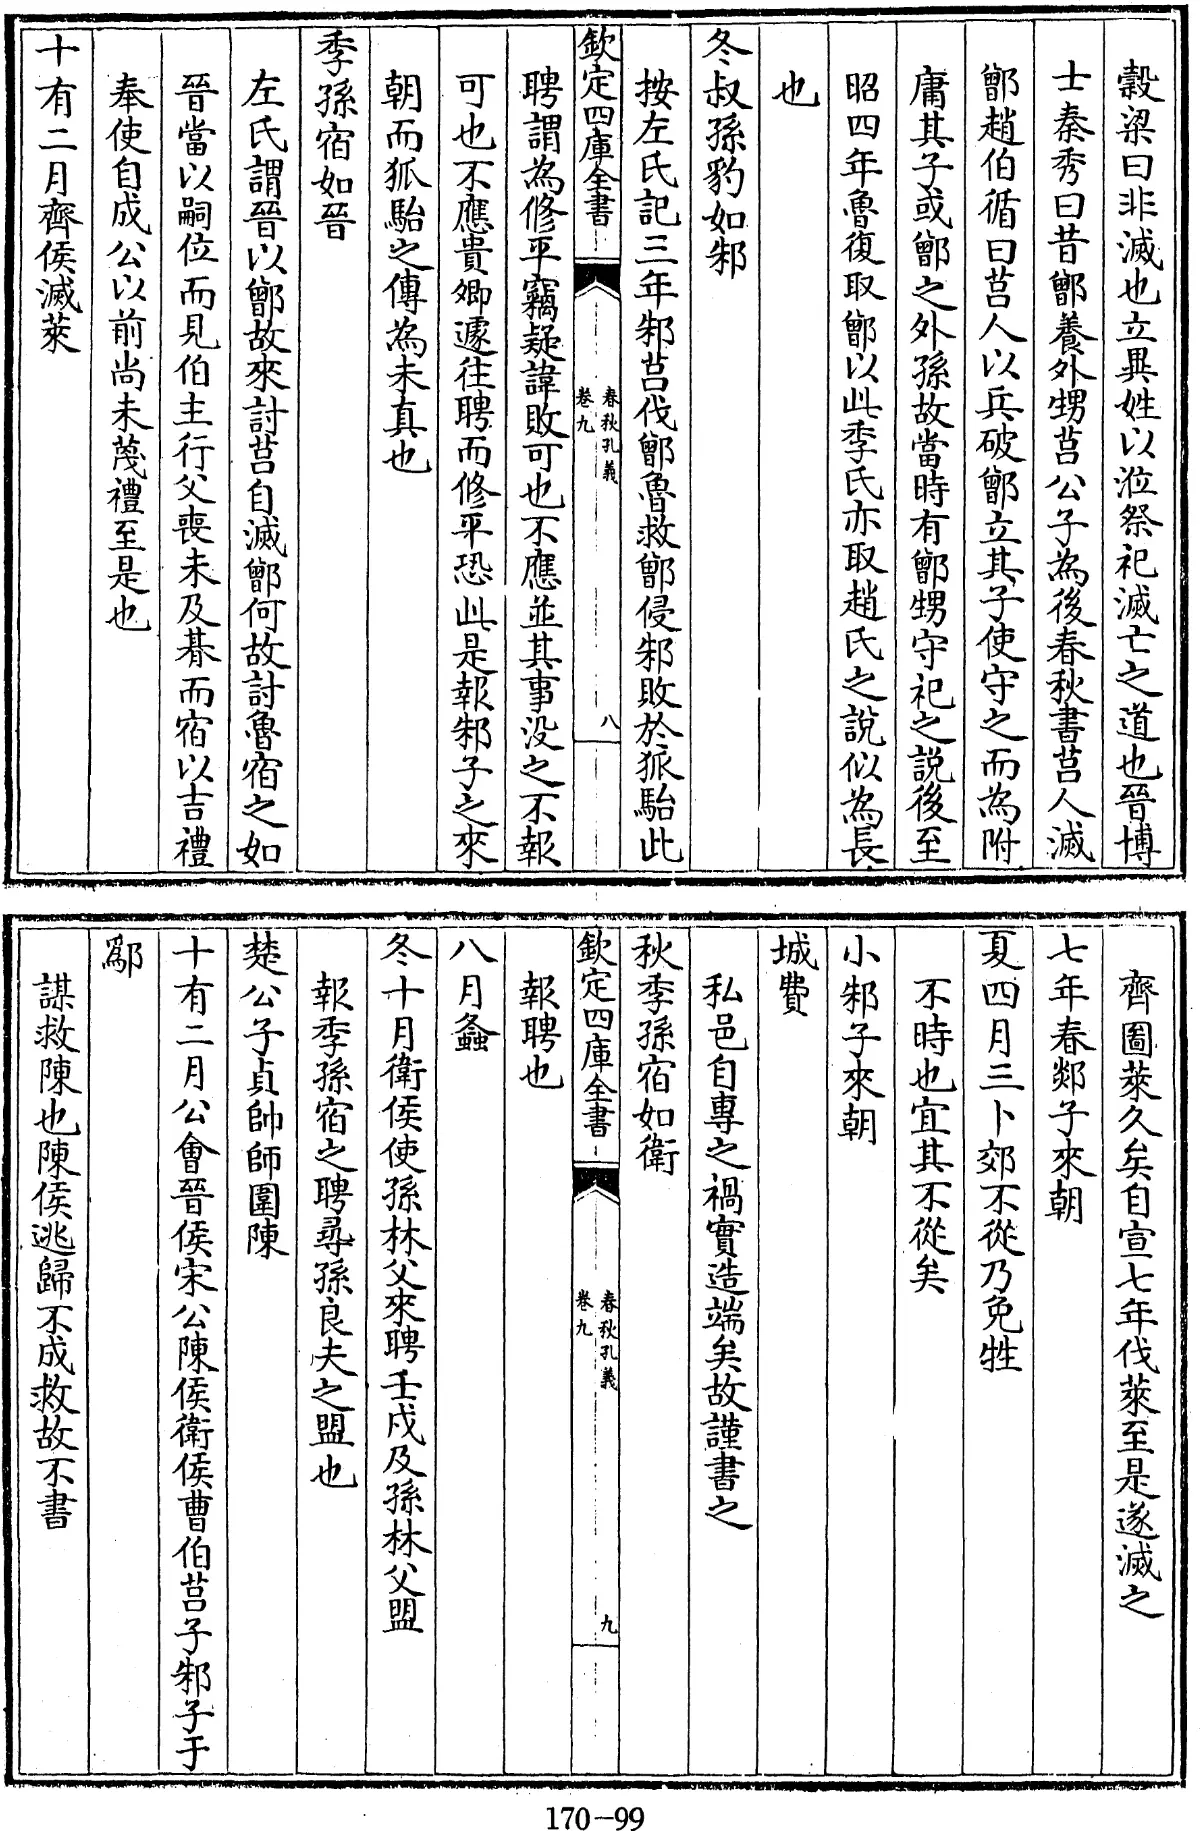 穀梁曰非滅也立異姓以涖祭祀滅亡之道也晉博
士秦秀曰昔鄫養外甥莒公子為後春秋書莒人滅
鄫趙伯循曰莒人以兵破鄫立其子使守之而為附
庸其子或鄫之外孫故當時有鄫甥守祀之說後至
昭四年魯復取鄫以此季氏亦取趙氏之說似為長
也
冬叔孫豹如邾
按左氏記三年邾莒伐鄫魯救鄫侵邾敗於狐駘此
欽定四庫全書
春秋孔義
卷九
八
聘謂為修平竊疑諱敗可也不應並其事没之不報
可也不應貴卿遽往聘而修平恐此是報邾子之來
朝而狐駘之傳為未真也
季孫宿如晉
左氏謂晉以鄫故來討莒自滅鄫何故討魯宿之如
晉當以嗣位而見伯主行父喪未及朞而宿以吉禮
奉使自成公以前尚未蔑禮至是也
十有二月齊侯滅萊
齊圖萊久矣自宣七年伐萊至是遂滅之
七年春郯子來朝
夏四月三卜郊不從乃免牲
不時也宜其不從矣
小邾子來朝
城費
私邑自專之禍實造端矣故謹書之
秋季孫宿如衛
欽定四庫全書
春秋孔義
卷九
九
報聘也
八月螽
冬十月衛侯使孫林父來聘壬戌及孫林父盟
報季孫宿之聘尋孫良夫之盟也
楚公子貞帥師圍陳
十有二月公會晉侯宋公陳侯衛侯曹伯莒子邾子于
鄬
謀救陳也陳侯逃歸不成救故不書
170-99